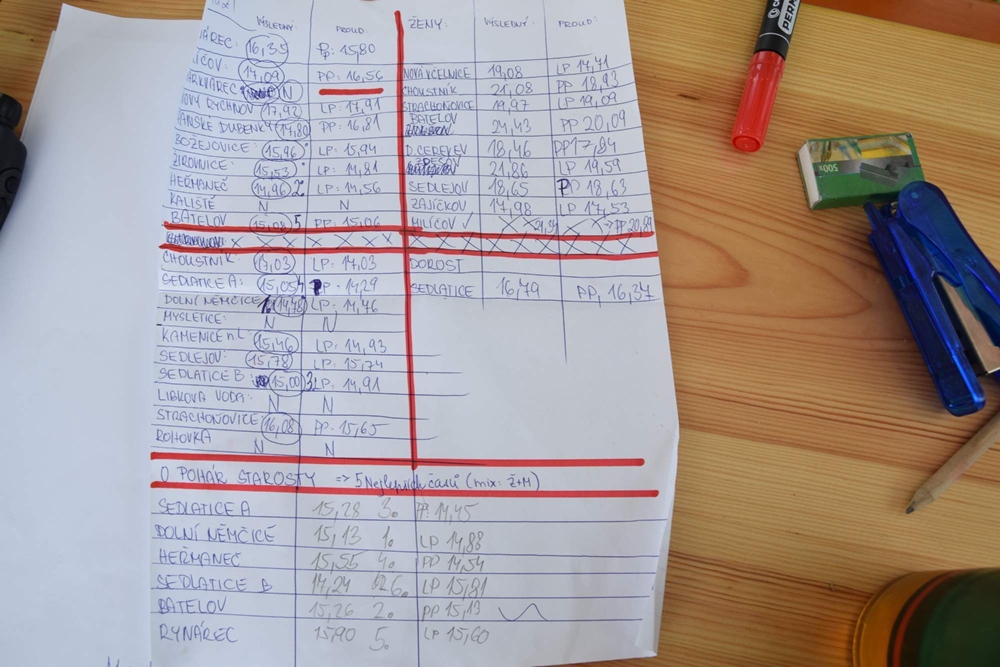 VÝSLEDNÝ: PROUD: ŽENY: VÝSLEDNÝ: PROUD:
16,35 P: 15,80
17,09 PP: 16,56 NOVÁ VČELNICE 19,08 LP 17,71
N CHOUSTNÍK 21,08 PP 18,93
NOVÝ RYCHNOV 17,92 LP: 17,91 STRACHOŇOVICE 19,97 LP 19,09
PANSKÉ DUBENKY 14,80 PP: 16,81 BATELOV 24,43 PP 20,09
BOŽEJOVICE: 15,96 LP: 15,94 D. CEREKEV 18,46 PP 17,84
ŽIROVNICE: 15,53 LP: 14,81 21,86 LP 19,59
HEŘMANEČ 14,96 2 LP: 14,56 SEDLEJOV 18,65 PP 18,63
KALIŠTĚ N N ZAJÍČKOV 17,98 LP 17,53
BATELOV 15,08 5 PP: 15,06 MILÍČOV ✓ 21,34 PP 20,89
X X X X X X X X X X X X
CHOUSTNÍK: 17,03 LP: 17,03 DOROST
SEDLATICE A: 15,05 4 PP: 14,29 SEDLATICE 16,79 PP, 16,37
DOLNÍ NĚMČICE 1. 14,78 LP: 14,76
MYSLETICE: N N
KAMENICE n.L 15,46 LP: 14,93
SEDLEJOV: 15,78 LP: 15,74
SEDLATICE B: 15,00 3 LP: 14,91
LIBKOVA VODA: N N
STRACHOŇOVICE 16,08 PP: 15,65
ROHOVKA N N
O POHÁR STAROSTY => 5 Nejlepších časů (mix: Ž+M)
SEDLATICE A 15,28 3. PP 14,45
DOLNÍ NĚMČICE 15,13 1. LP 14,88
HEŘMANEČ 15,55 4. PP 14,54
SEDLATICE B 17,24 6. LP 15,81
BATELOV 15,26 2. PP 15,13
RYNÁREC 15,90 5. LP 15,60
500x